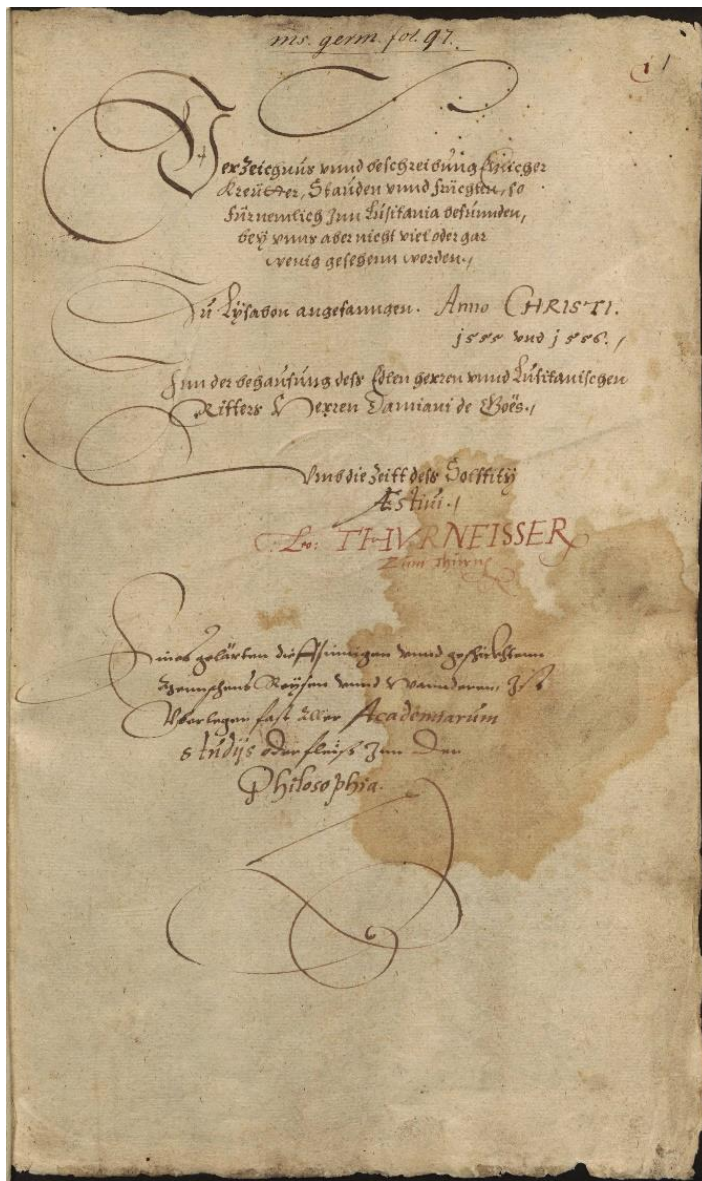 ms. germ. fol. 97.
1
Verzeichnus vnnd beschreibung Etlicher
Kreütter, Stauden vnnd früchten, so
fürnemlich Inn Lusitania befunnden,
beÿ vnns aber nicht viel oder gar
wenig gesehenn worden./
Zu Lÿsabon angefanngen. Anno CHRISTI.
1555 vnd 1556./
Inn der behausung dess Edlen herren vnnd Lusitanischen
Ritters Herren Damiani de Goës./
Vmb die Zeitt dess Solstitÿ
Æstiui./
Leo: THVRNEISSER
Zum Thurn
Eines gelärten dieffsinnigen vnnd geschickten
Mennschens Reÿsen vnnd wannderen, Ist
Vberlegen fast aller Academiarum
studÿs oder fleiss Inn Der
Philosophia.